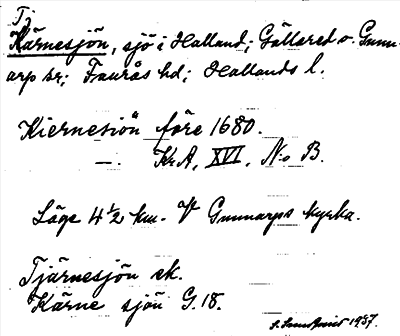 Tj
Kärnesjön, sjö i Halland; Gällared o. Gunn-
arp sr; Faurås hd; Hallands l.
Kiernesiön före 1680.
—. KrA, XVI, N:o B.
Läge 4 1/2 km. V Gunnarps kyrka.
Tjärnesjön ek.
Kärne sjön G.18.
1937.